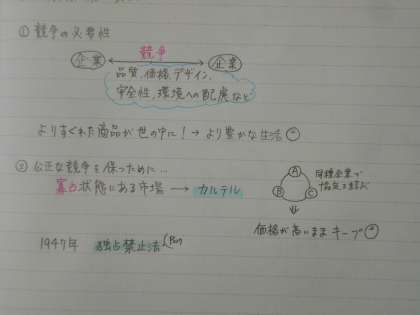 ① 競争の必要性
企業 競争 企業
品質、価格、デザイン、
安全性、環境への配慮など
よりすぐれた商品が世の中に!→より豊かな生活
② 公正な競争を保つために…
寡占状態にある市場 → カルテル
A
B C
同種企業で
協定を結ぶ
⇓
価格が高いままキープ
1947年 独占禁止法